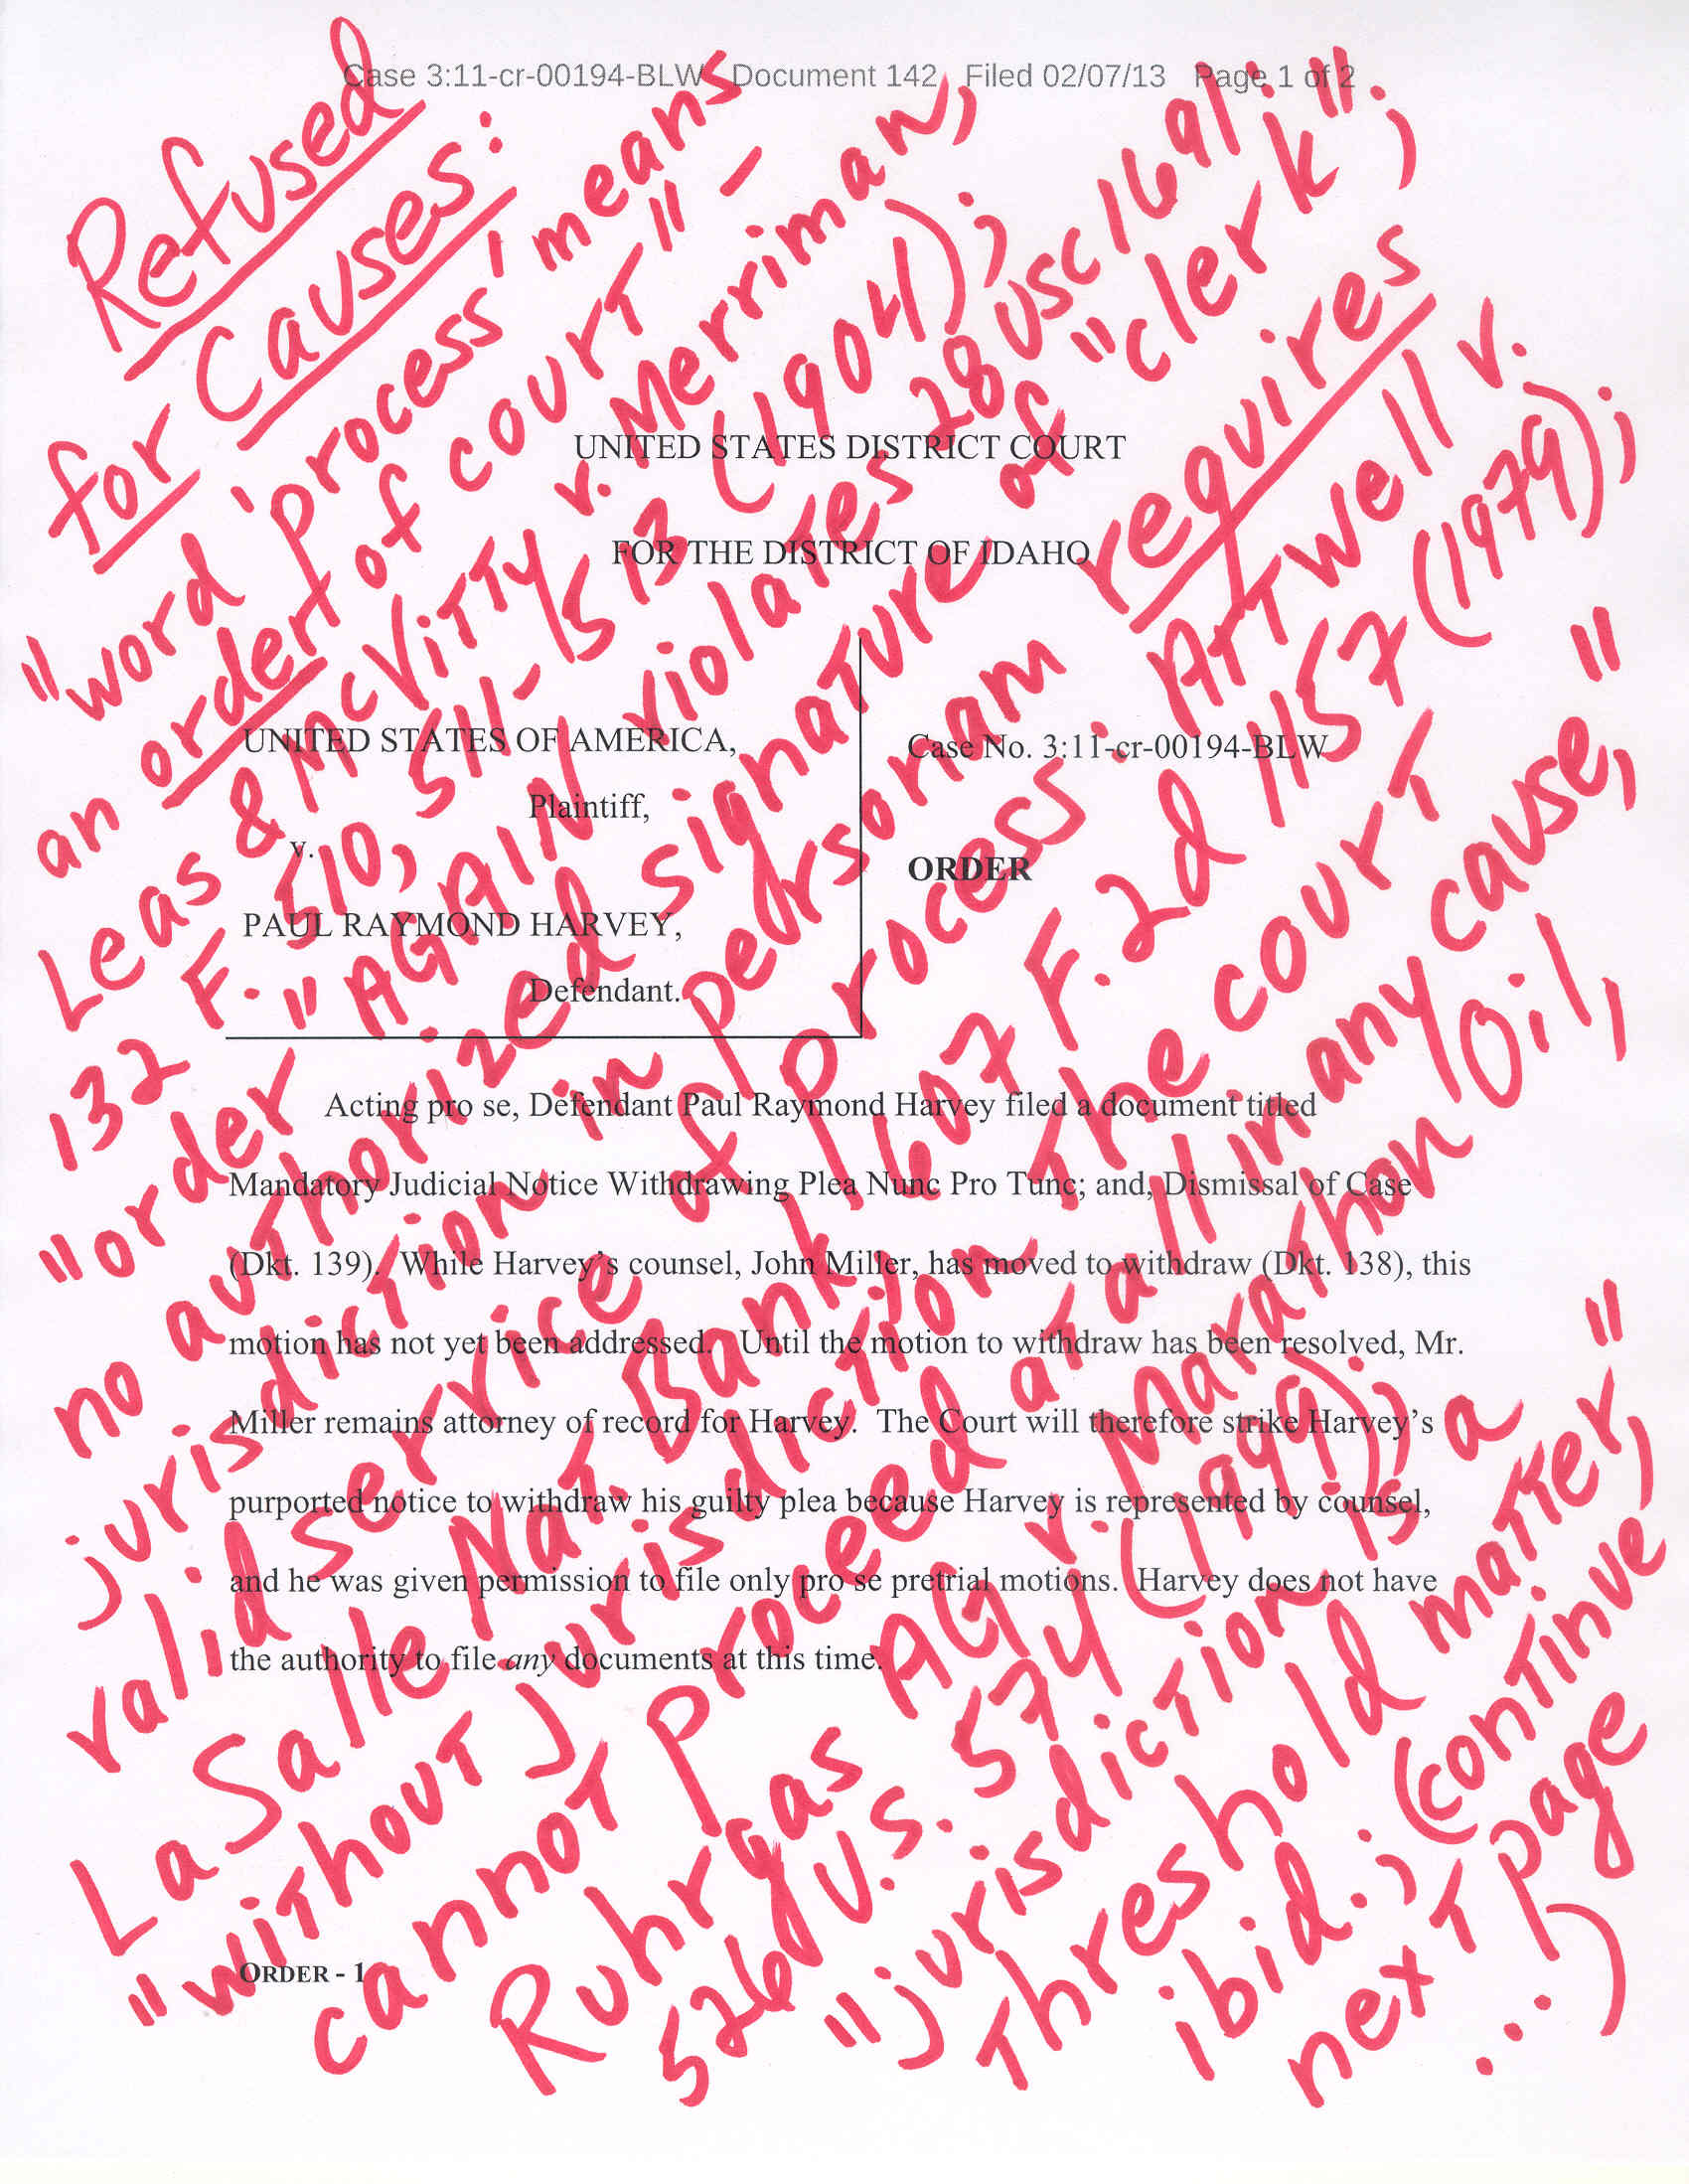 Case 3:11-cr-00194-BLW Document 142 Filed 02/07/13 Page 1 of 2
UNITED STATES DISTRICT COURT
FOR THE DISTRICT OF IDAHO
UNITED STATES OF AMERICA,
Plaintiff,
v.
PAUL RAYMOND HARVEY,
Defendant.
Case No. 3:11-cr-00194-BLW
ORDER
Acting pro se, Defendant Paul Raymond Harvey filed a document titled
Mandatory Judicial Notice Withdrawing Plea Nunc Pro Tunc; and, Dismissal of Case
(Dkt. 139). While Harvey's counsel, John Miller, has moved to withdraw (Dkt. 138), this
motion has not yet been addressed. Until the motion to withdraw has been resolved, Mr.
Miller remains attorney of record for Harvey. The Court will therefore strike Harvey's
purported notice to withdraw his guilty plea because Harvey is represented by counsel,
and he was given permission to file only pro se pretrial motions. Harvey does not have
the authority to file any documents at this time.
ORDER - 1
Refused
for Causes:
"word 'process' means
an order of court" -
Leas & McVitty v. Merriman,
132 F. 510, 511-513 (1904);
"order" AGAIN violates 28 USC 1691:
no authorized signature of "clerk";
jurisdiction in personam requires
valid service of process: Artwell v.
LaSalle Nat. Bank, 607 F.2d 1157 (1979);
"without jurisdiction the court
cannot proceed at all in any cause,"
Ruhrgas AG v. Marathon Oil,
526 U.S. 574 (1999);
"jurisdiction is a
threshold matter,"
ibid.; (continue
next page
...)